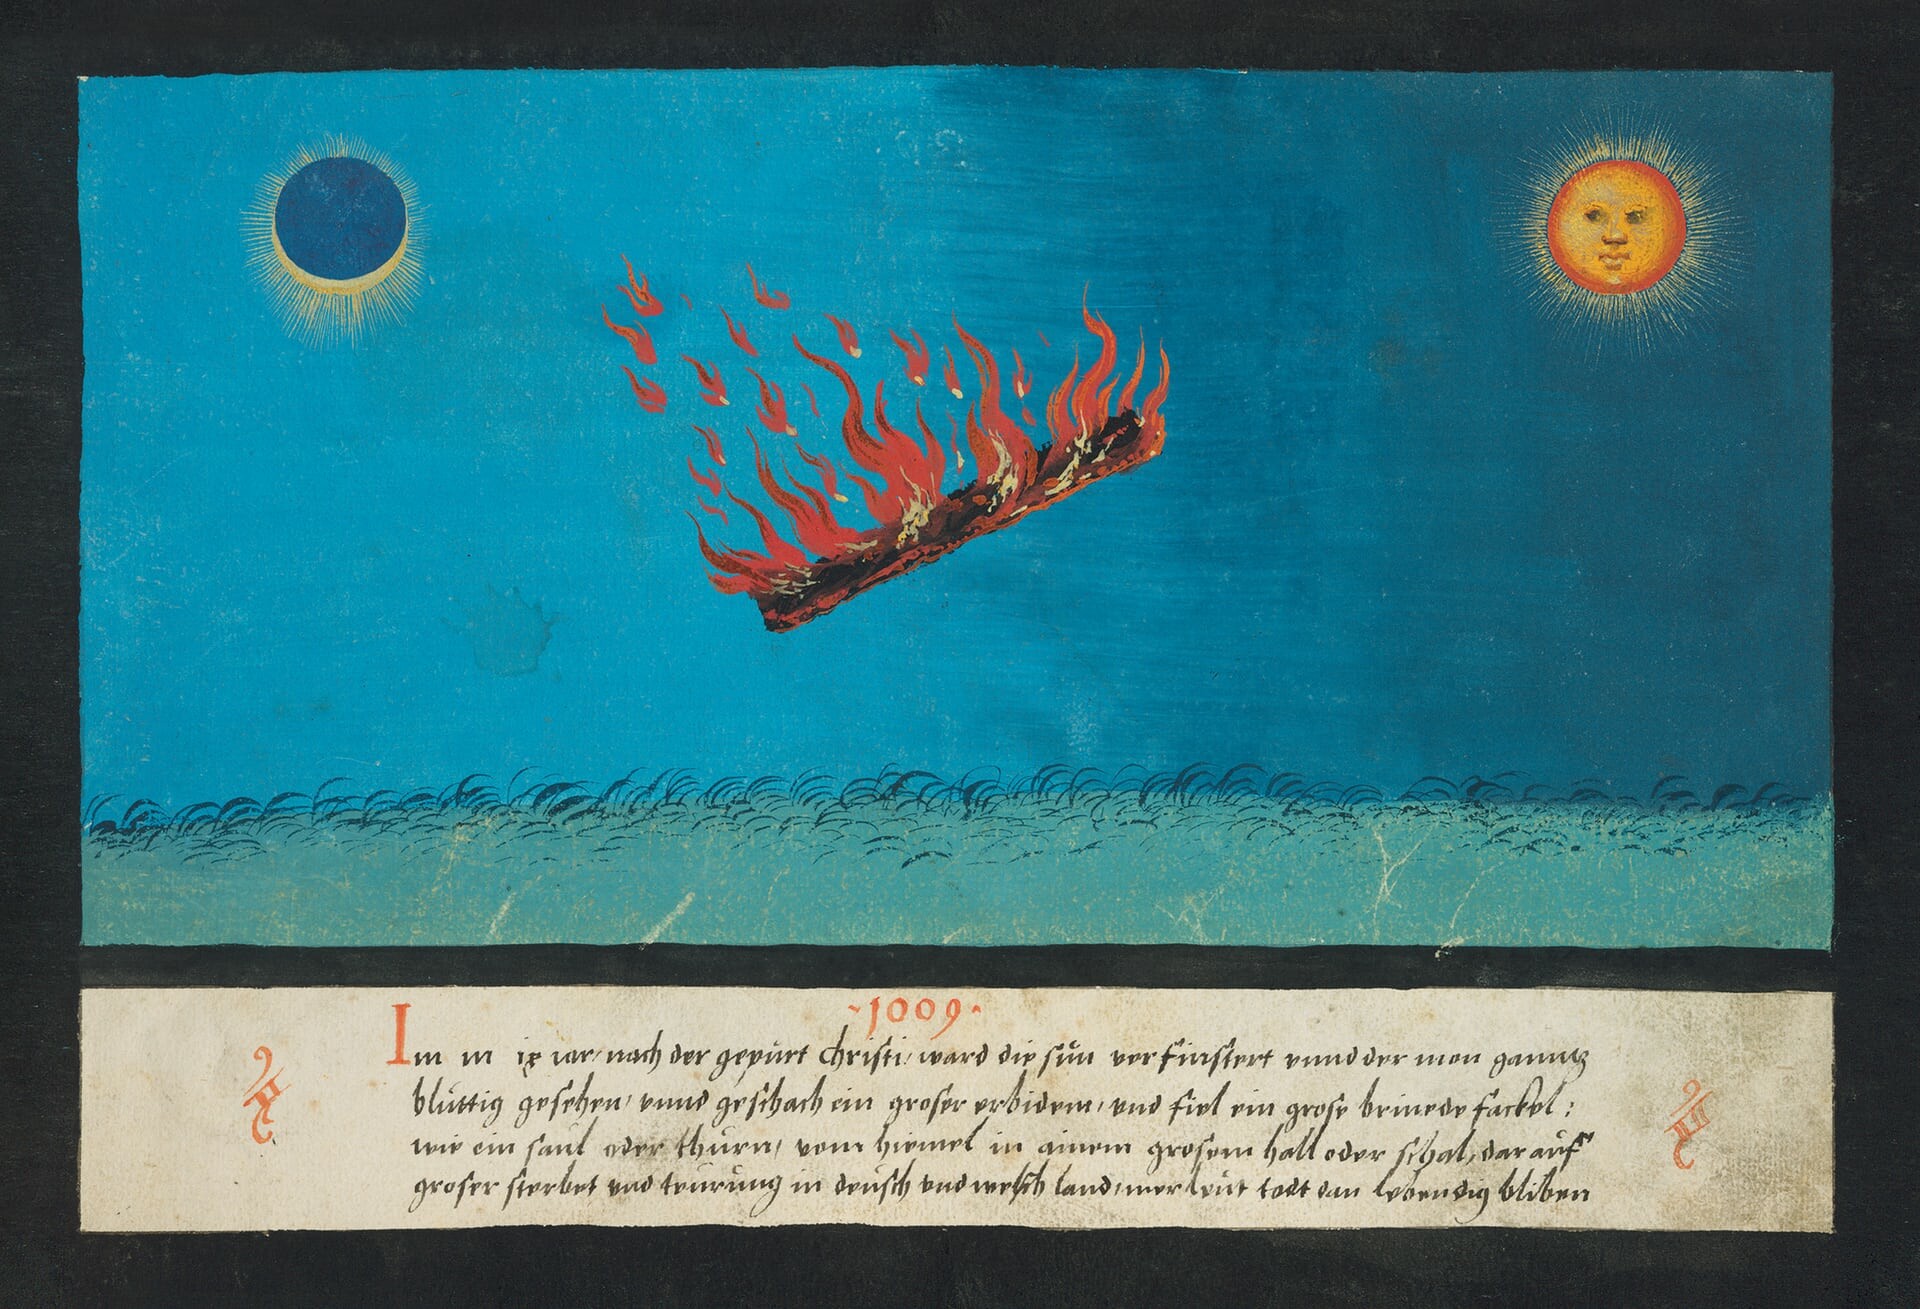 ·1009·
Im m ix iar, nach der gepürt Christi, ward die sün verfinstert unnd der mon ganntz
blüttig gesehen, unnd geschach ein groser erbidem, und fiel ein grose brinede fackel :
wie ein saül oder thürn, vom hiemel in ainem grosem hall oder schal, dar aüf
groser sterbet und teürüng in deüsch und welsch land, mer leüt todt dan lebendig bliben